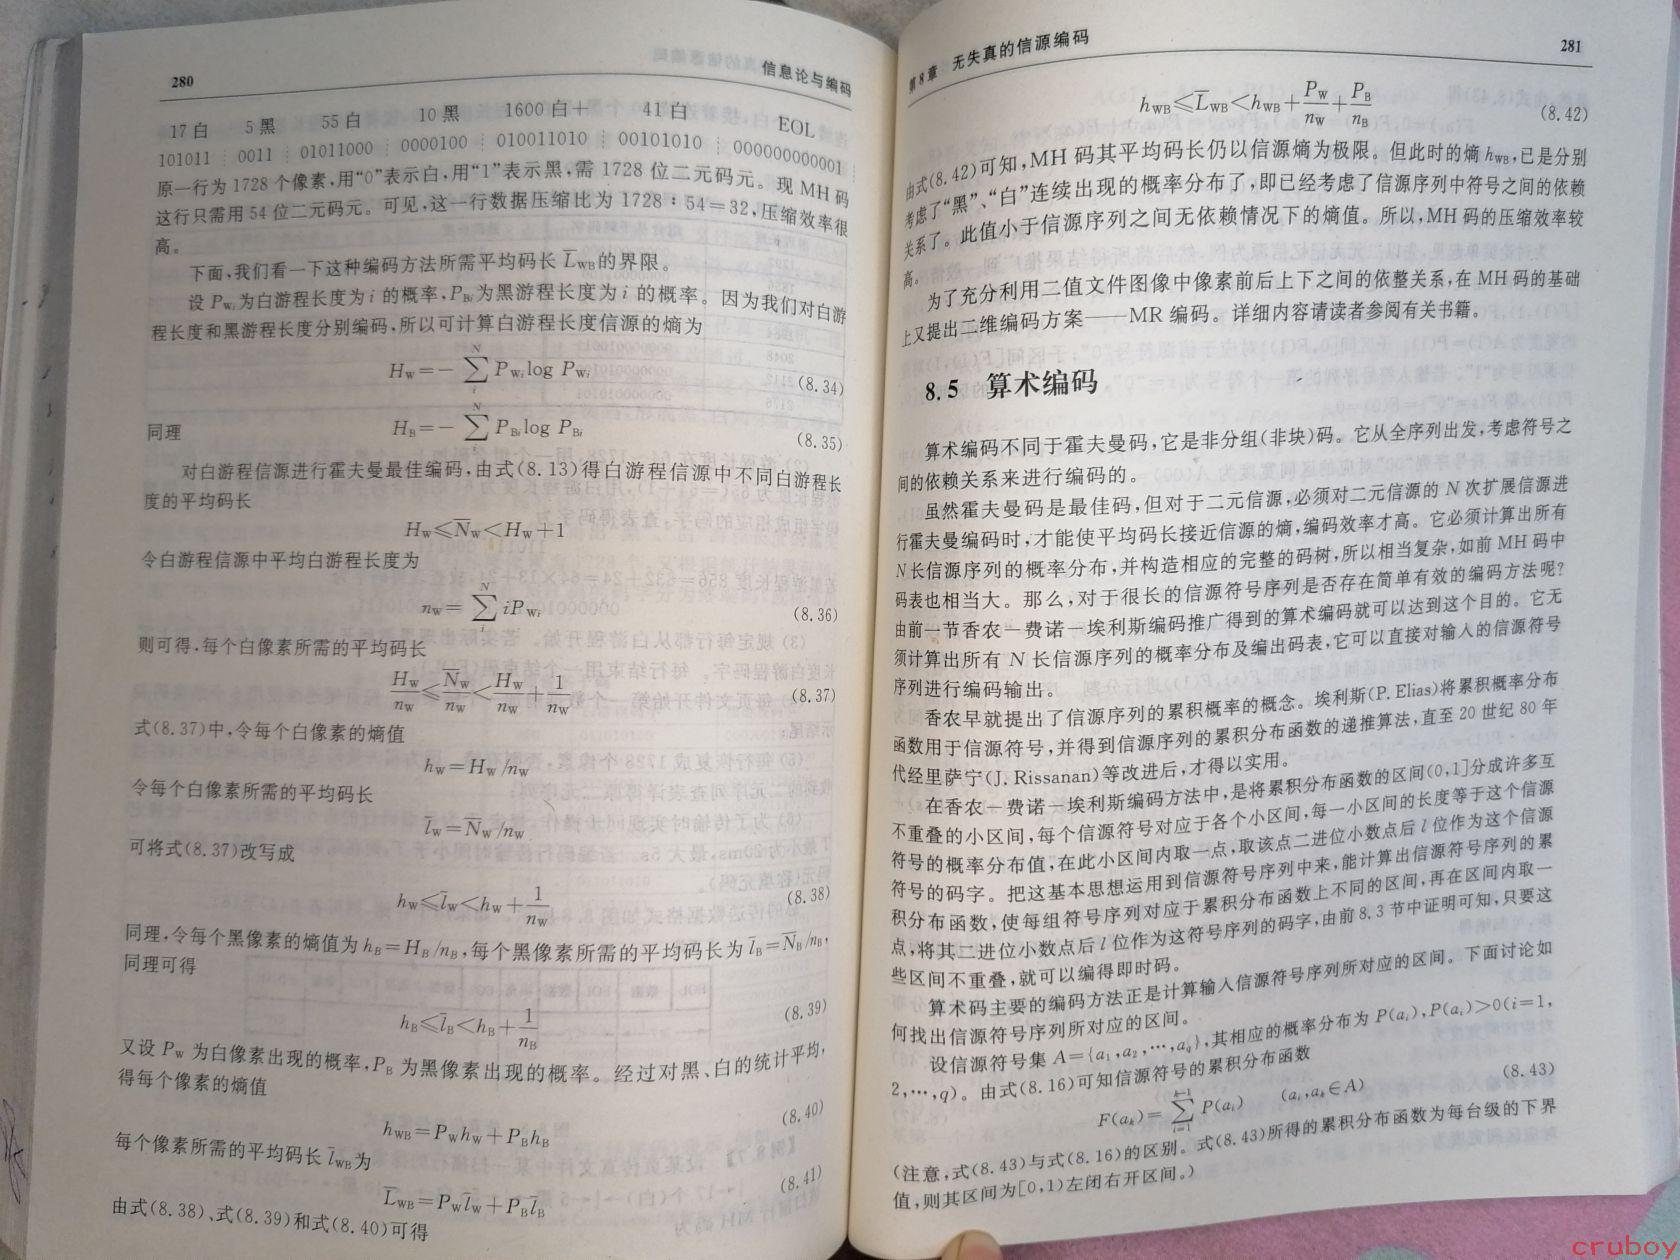 280
信息论与编码
17白 5黑 55白 10黑 1600白+ 41白 EOL
101011 0011 01011000 0000100 010011010 00101010 000000000001
原一行为1728个像素,用“0”表示白,用“1”表示黑,需1728位二元码元。现MH码
这行只需用54位二元码元。可见,这一行数据压缩比为1728∶54=32,压缩效率很
高。
下面,我们看一下这种编码方法所需平均码长L̄WB的界限。
设PWi为白游程长度为i的概率,PBi为黑游程长度为i的概率。因为我们对白游
程长度和黑游程长度分别编码,所以可计算白游程长度信源的熵为
HW=-∑PWi log PWi (8.34)
同理 HB=-∑PBi log PBi (8.35)
对白游程信源进行霍夫曼最佳编码,由式(8.13)得白游程信源中不同白游程长
度的平均码长
HW≤N̄W<HW+1
令白游程信源中平均白游程长度为
nW=∑iPWi (8.36)
则可得,每个白像素所需的平均码长
HW/nW≤N̄W/nW<HW/nW+1/nW (8.37)
式(8.37)中,令每个白像素的熵值
hW=HW/nW
令每个白像素所需的平均码长
l̄W=N̄W/nW
可将式(8.37)改写成
hW≤l̄W<hW+1/nW (8.38)
同理,令每个黑像素的熵值为hB=HB/nB,每个黑像素所需的平均码长为l̄B=N̄B/nB,
同理可得
hB≤l̄B<hB+1/nB (8.39)
又设PW为白像素出现的概率,PB为黑像素出现的概率。经过对黑、白的统计平均,
得每个像素的熵值
hWB=PWhW+PBhB (8.40)
每个像素所需的平均码长l̄WB为
L̄WB=PWl̄W+PBl̄B (8.41)
由式(8.38)、式(8.39)和式(8.40)可得
第8章 无失真的信源编码
281
hWB≤L̄WB<hWB+PW/nW+PB/nB (8.42)
由式(8.42)可知,MH码其平均码长仍以信源熵为极限。但此时的熵hWB,已是分别
考虑了“黑”、“白”连续出现的概率分布了,即已经考虑了信源序列中符号之间的依赖
关系了。此值小于信源序列之间无依赖情况下的熵值。所以,MH码的压缩效率较
高。
为了充分利用二值文件图像中像素前后上下之间的依整关系,在MH码的基础
上又提出二维编码方案——MR编码。详细内容请读者参阅有关书籍。
8.5 算术编码
算术编码不同于霍夫曼码,它是非分组(非块)码。它从全序列出发,考虑符号之
间的依赖关系来进行编码的。
虽然霍夫曼码是最佳码,但对于二元信源,必须对二元信源的N次扩展信源进
行霍夫曼编码时,才能使平均码长接近信源的熵,编码效率才高。它必须计算出所有
N长信源序列的概率分布,并构造相应的完整的码树,所以相当复杂,如前MH码中
码表也相当大。那么,对于很长的信源符号序列是否存在简单有效的编码方法呢?
由前一节香农—费诺—埃利斯编码推广得到的算术编码就可以达到这个目的。它无
须计算出所有N长信源序列的概率分布及编出码表,它可以直接对输入的信源符号
序列进行编码输出。
香农早就提出了信源序列的累积概率的概念。埃利斯(P. Elias)将累积概率分布
函数用于信源符号,并得到信源序列的累积分布函数的递推算法,直至20世纪80年
代经里萨宁(J. Rissanan)等改进后,才得以实用。
在香农—费诺—埃利斯编码方法中,是将累积分布函数的区间(0,1]分成许多互
不重叠的小区间,每个信源符号对应于各个小区间,每一小区间的长度等于这个信源
符号的概率分布值,在此小区间内取一点,取该点二进位小数点后l位作为这个信源
符号的码字。把这基本思想运用到信源符号序列中来,能计算出信源符号序列的累
积分布函数,使每组符号序列对应于累积分布函数上不同的区间,再在区间内取一
点,将其二进位小数点后l位作为这符号序列的码字,由前8.3节中证明可知,只要这
些区间不重叠,就可以编得即时码。
算术码主要的编码方法正是计算输入信源符号序列所对应的区间。下面讨论如
何找出信源符号序列所对应的区间。
设信源符号集A={a1,a2,…,aq},其相应的概率分布为P(ai),P(ai)>0(i=1,
2,…,q)。由式(8.16)可知信源符号的累积分布函数
F(ak)=∑P(ai) (ai,ak∈A) (8.43)
(注意,式(8.43)与式(8.16)的区别。式(8.43)所得的累积分布函数为每台级的下界
值,则其区间为[0,1)左闭右开区间。)
cruboy